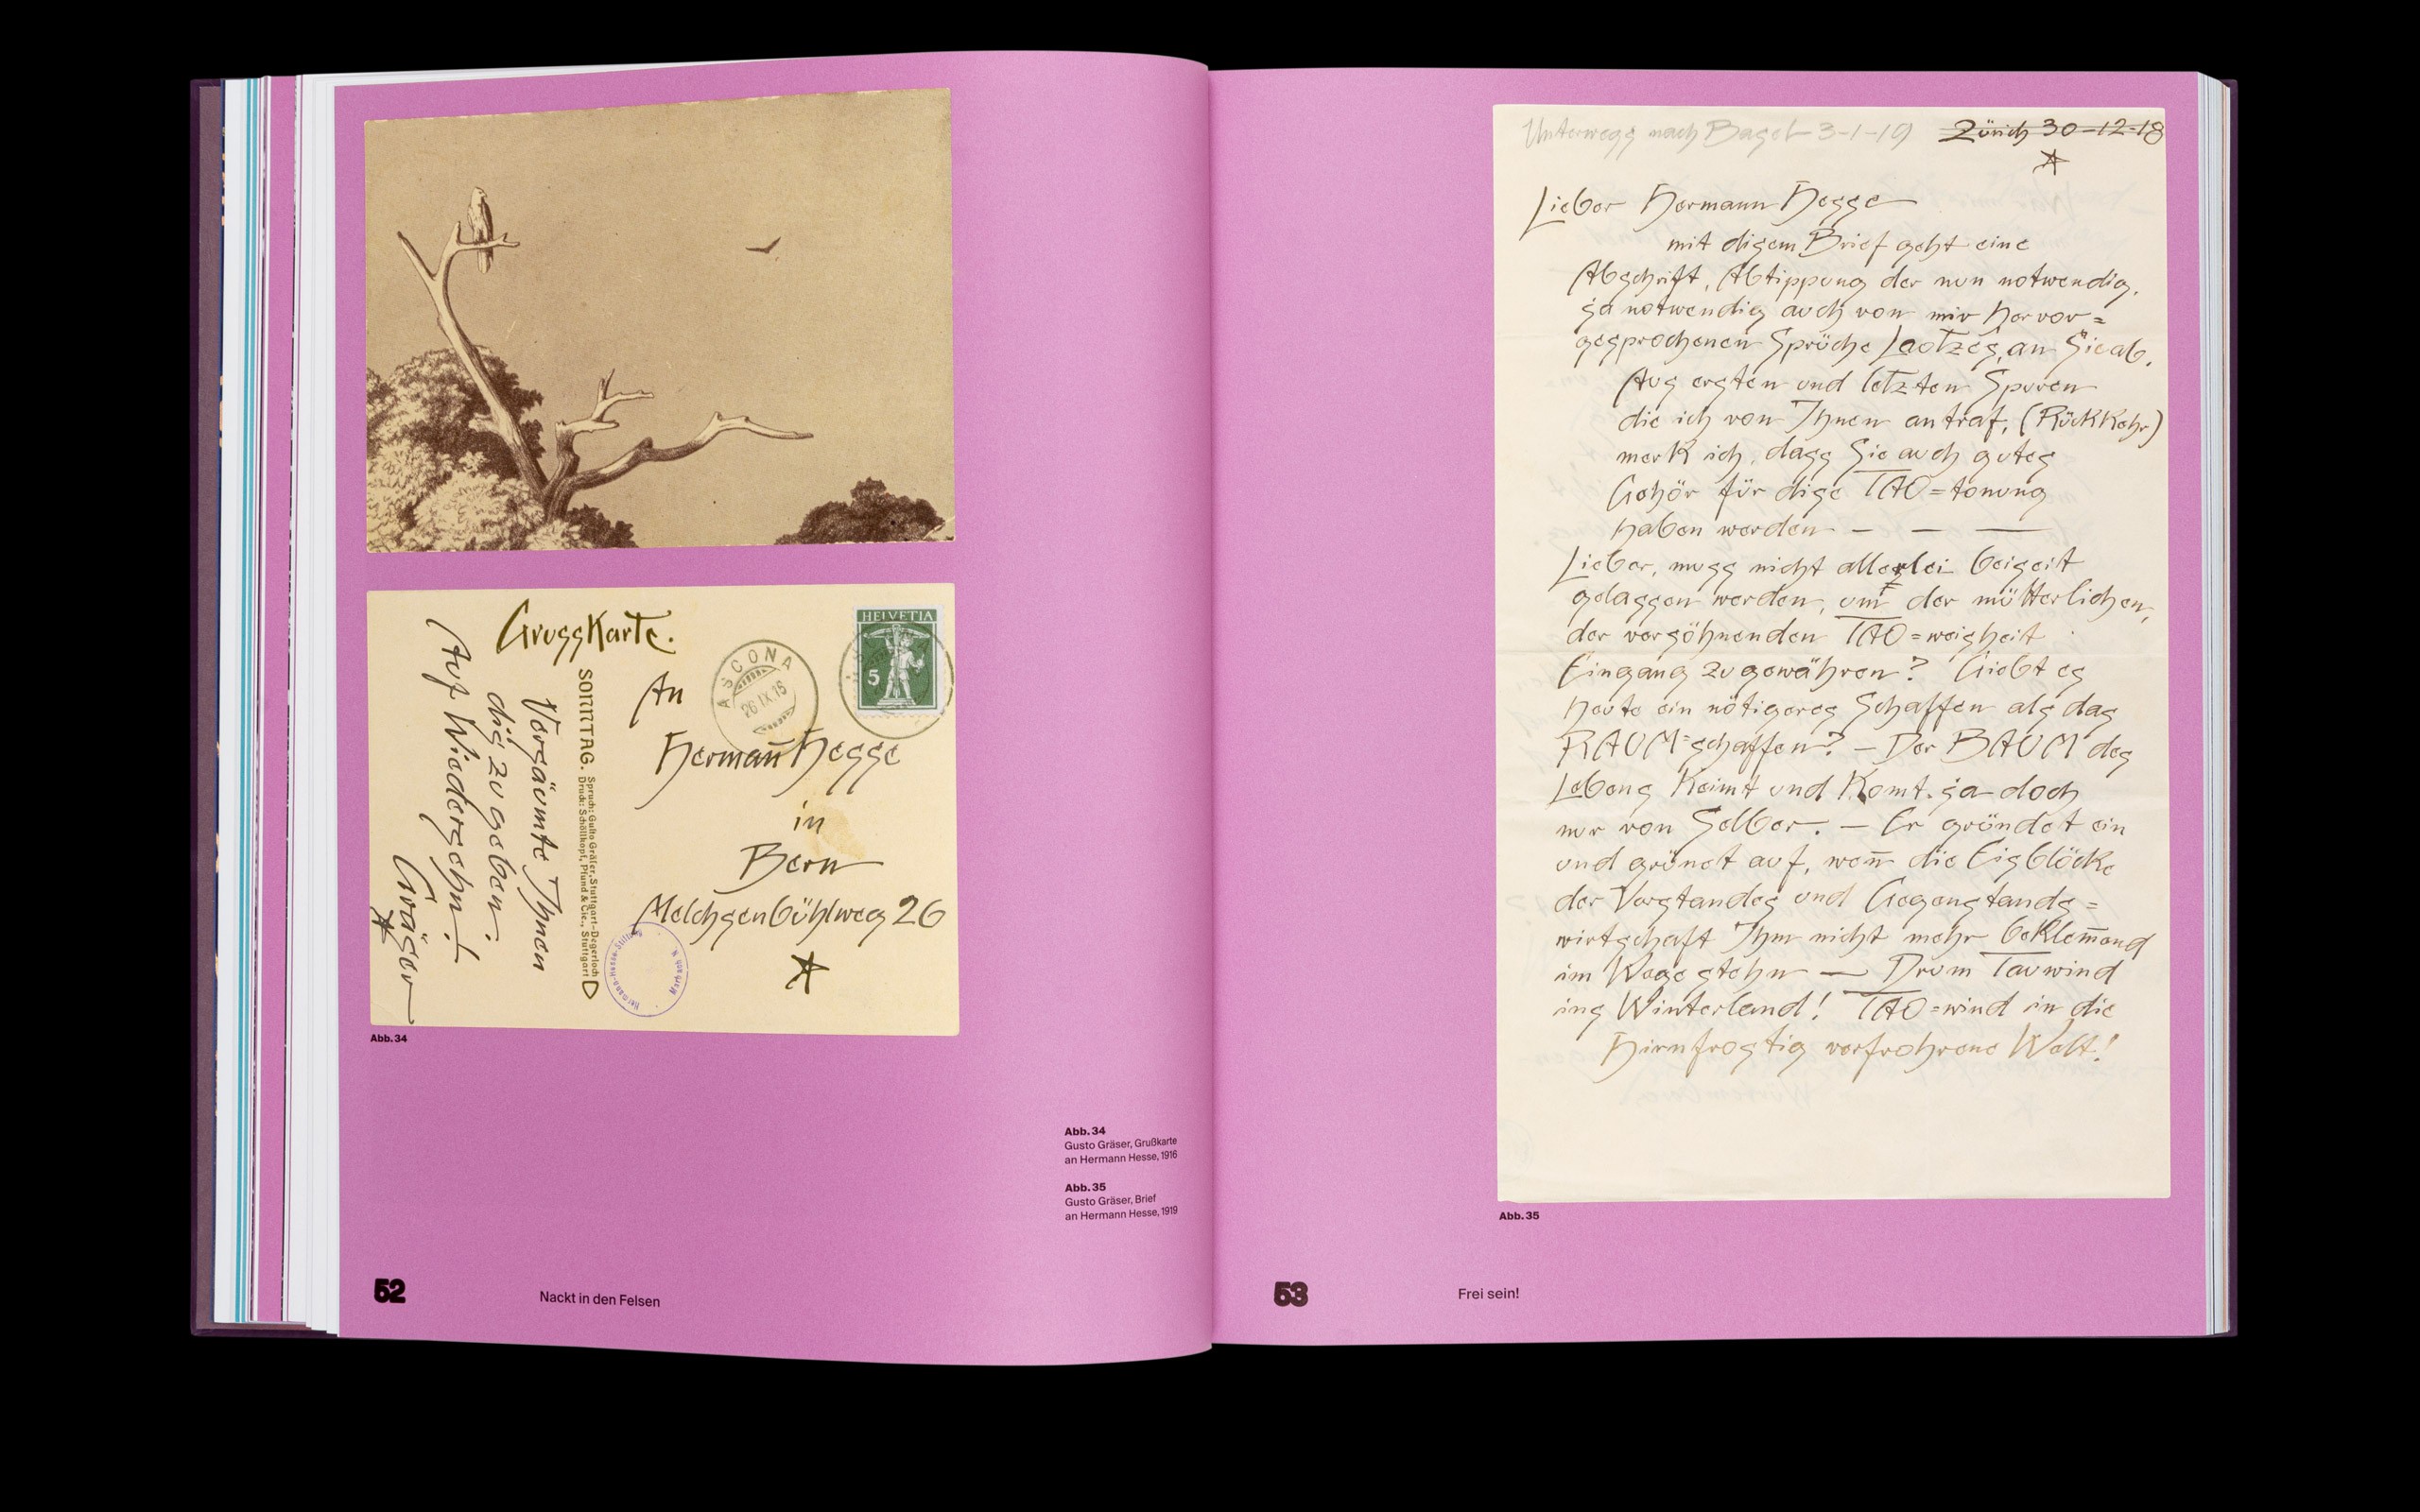 Grusskarte.
HELVETIA
5
ASCONA
26.IX.16
An
Hermann Hesse
in
Bern
Melchsenbühlweg 26
SONNTAG.
Spruch: Gusto Gräser, Stuttgart-Degerloch
Druck: Schöllkopf, Pfund & Cie., Stuttgart
Versäumte Ihnen
dis zu geben.
Auf Wiedersehn!
Gräser
Hermann-Hesse-Stiftung
Marbach N
Abb. 34
Abb. 34
Gusto Gräser, Grußkarte
an Hermann Hesse, 1916
Abb. 35
Gusto Gräser, Brief
an Hermann Hesse, 1919
52
Nackt in den Felsen
Unterwegs nach Basel 3-1-19 Zürich 30-12-18
Lieber Hermann Hesse
mit disem Brief geht eine
Abschrift, Abtippung der nun notwendig,
ja notwendig auch von mir hervor=
gesprochenen Sprüche Laotzes, an Sie ab.
Aus ersten und letzten Spuren
die ich von Ihnen antraf, (Rückkehr)
merk ich, dass Sie auch gutes
Gehör für dise TAO=tonung
haben werden — — —
Lieber, muss nicht allerlei beiseit
gelassen werden, um der mütterlichen,
der versöhnenden TAO=weisheit
Eingang zu gewähren? Giebt es
heute ein nötigeres Schaffen als das
RAUM=schaffen? — Der BAUM des
Lebens keimt und komt ja doch
nur von Selber. — Er gründet ein
und grünet auf, weñ die Eisblöcke
der Verstandes und Gegenstands=
wirtschaft Ihm nicht mehr beklem̄end
im Wege stehn — Drum Tauwind
ins Winterland! TAO=wind in die
Hirnfrostig verfrohrene Welt!
Abb. 35
53
Frei sein!